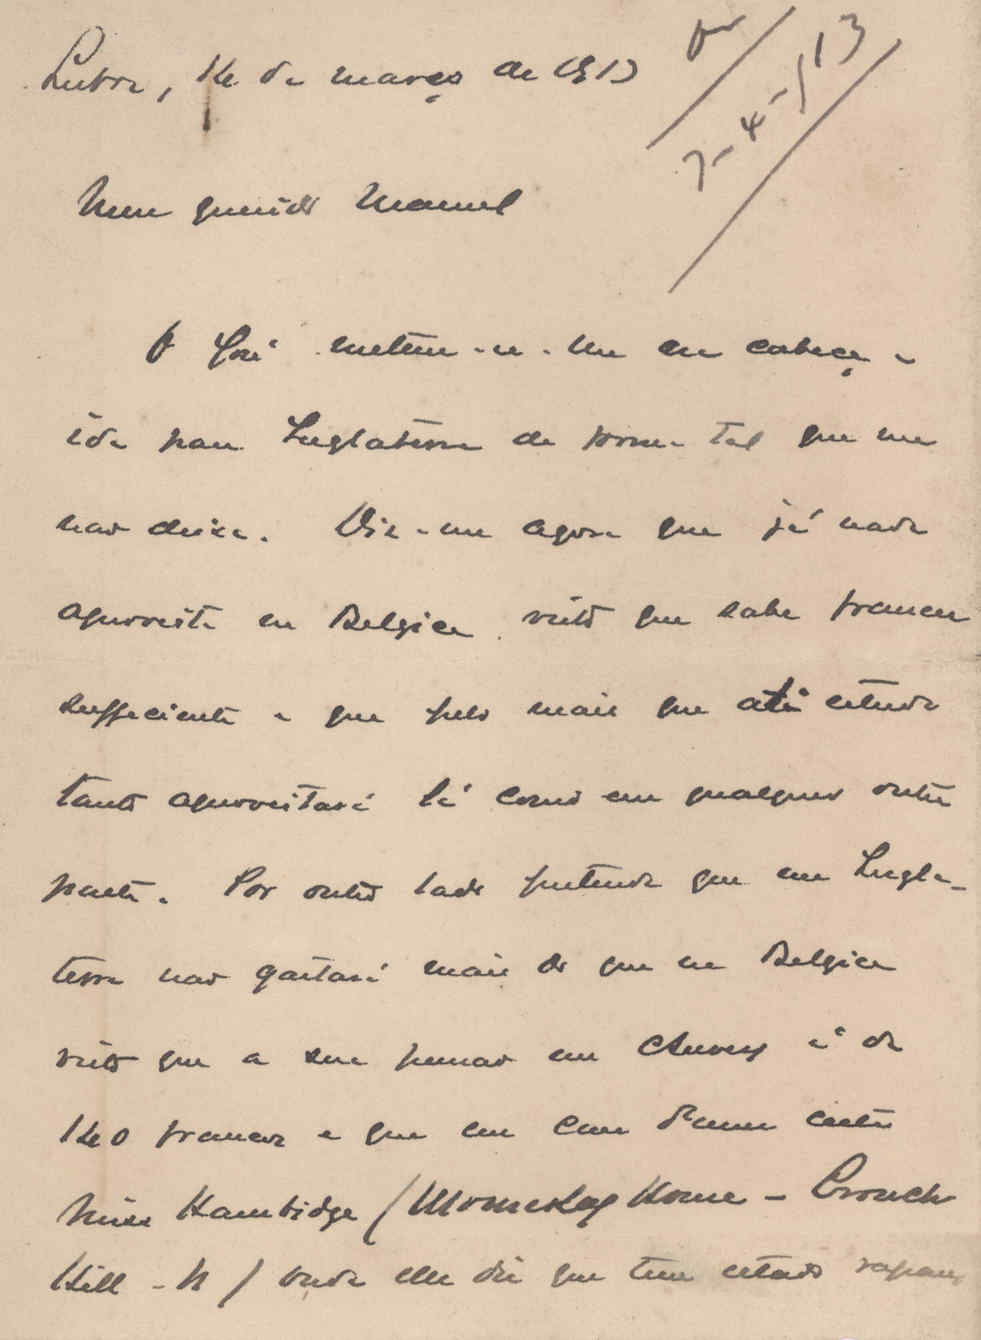 Lisboa, 14 de março de 1913
7-4-913
Meu querido Manuel
O José metteu-se-lhe em cabeça a
ida para Inglaterra de forma tal que me
não deixa. Diz-me agora que já nada
aproveita em Belgica visto que sabe francez
sufficiente e que pelo mais que ali estuda
tanto aproveitará lá como em qualquer outra
parte. Por outro lado pretende que em Ingla-
terra não gastará mais do que na Belgica
visto que a sua pensão em Anvers é de
140 francos e que em casa d'uma certa
Miss Hambidge ( Home - Crouch
Hill - N) onde elle diz que tem estado rapazes